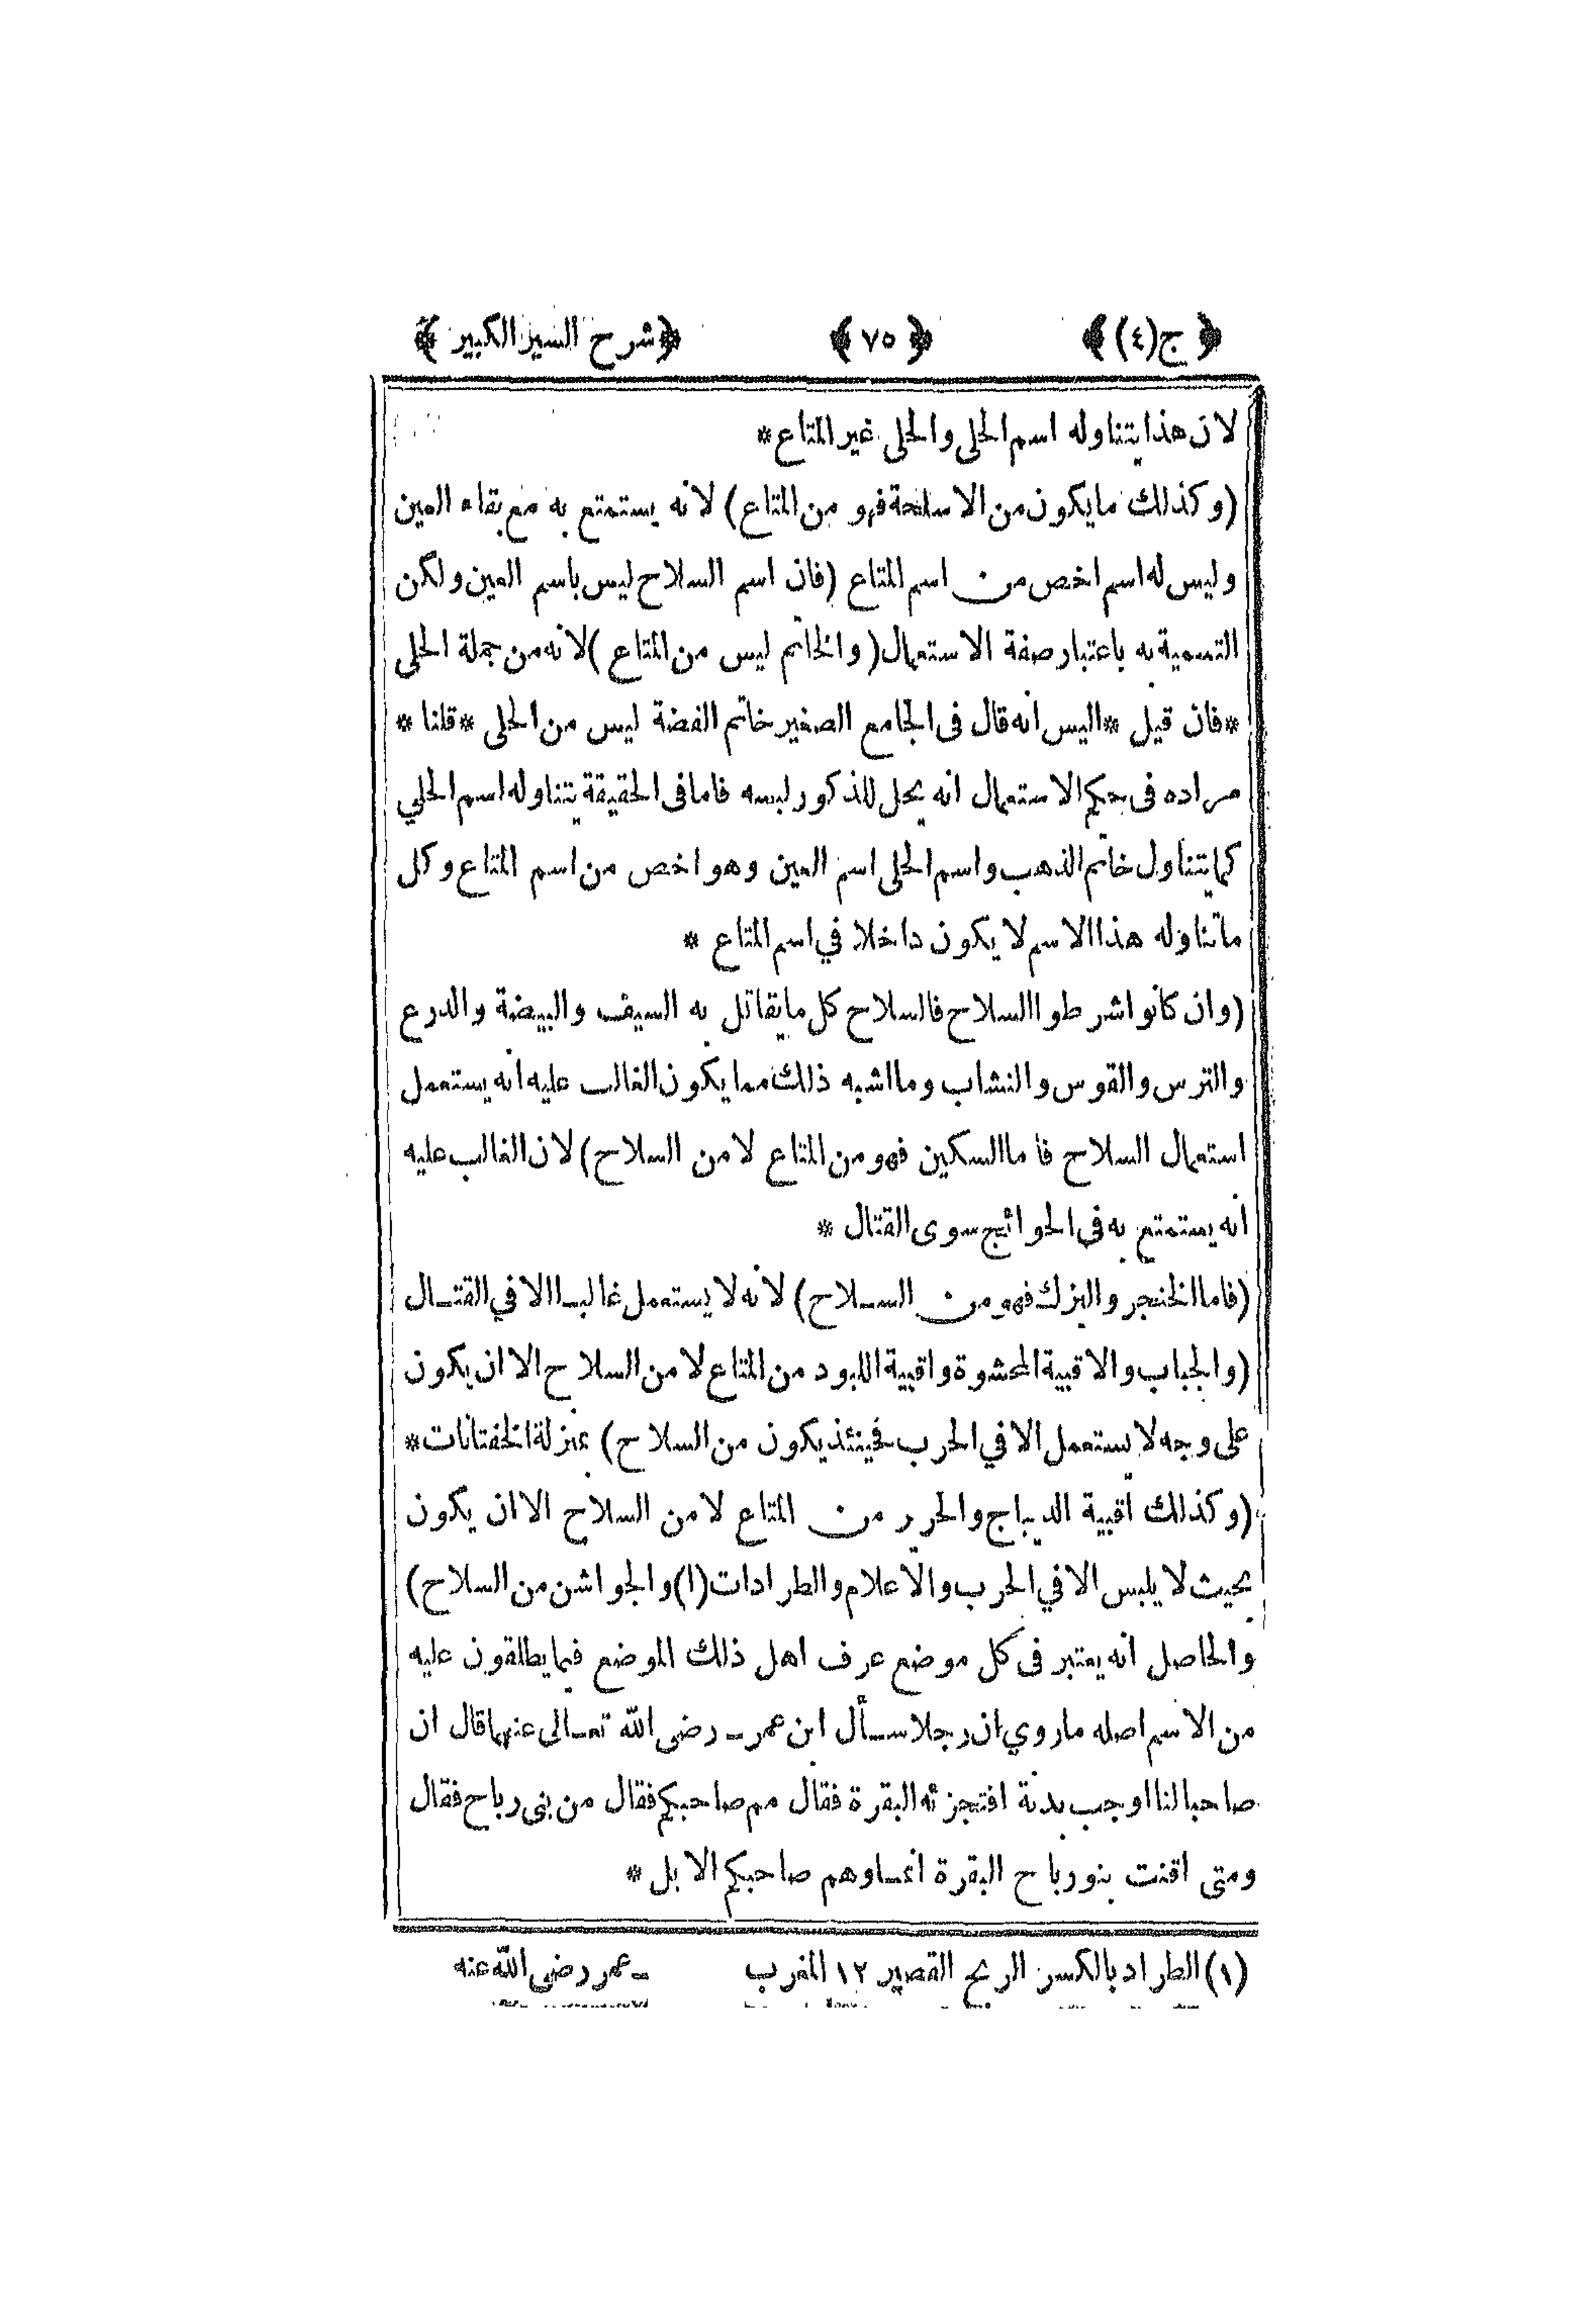 ﴿ ج(٤) ﴾ ﴿ ٧٥ ﴾ ﴿ شرح السير الكبير ﴾
لان هذا يتناوله اسم الحلى والحلى غير المتاع *
(وكذلك ما يكون من الاسلحة فهو من المتاع) لانه يستمتع به مع بقاء العين
وليس له اسم اخص من اسم المتاع (فان اسم السلاح ليس باسم العين ولكن
التسمية به باعتبار صفة الاستعمال (والخاتم ليس من المتاع) لانه من جملة الحلى
* فان قيل * اليس انه قال فى الجامع الصغير خاتم الفضة ليس من الحلى * قلنا *
مراده فى حكم الاستعمال انه يحل للذكور لبسه فاما فى الحقيقة يتناوله اسم الحلي
كما يتناول خاتم الذهب واسم الحلى اسم العين وهو اخص من اسم المتاع وكل
ما تناوله هذا الاسم لا يكون داخلا في اسم المتاع *
(وان كانوا شرطوا السلاح فالسلاح كل ما يقاتل به السيف والبيضة والدرع
والترس والقوس والنشاب وما اشبه ذلك مما يكون الغالب عليه انه يستعمل
استعمال السلاح فاما السكين فهو من المتاع لا من السلاح) لان الغالب عليه
انه يستمتع به فى الحوائج سوى القتال *
(فاما الخنجر والبزك فهو من السلاح) لانه لا يستعمل غالبا الا في القتال
(والجباب والاقبية المحشوة واقبية اللبود من المتاع لا من السلاح الا ان يكون
على وجه لا يستعمل الا في الحرب فحينئذ يكون من السلاح) بمنزلة الخفتانات *
(وكذلك اقبية الديباج والحرير من المتاع لا من السلاح الا ان يكون
بحيث لا يلبس الا في الحرب والاعلام والطرادات (١) والجواشن من السلاح)
والحاصل انه يعتبر فى كل موضع عرف اهل ذلك الموضع فيما يطلقون عليه
من الاسم اصله ما روي ان رجلا سأل ابن عمر ـ رضى الله تعالى عنهما قال ان
صاحبا لنا اوجب بدنة افتجزئه البقرة فقال مم صاحبكم فقال من بنى رباح فقال
ومتى اقنت بنو رباح البقرة انما وهم صاحبكم الابل *
(١) الطراد بالكسر الرمح القصير ١٢ المغرب ـ عمر رضى الله عنه